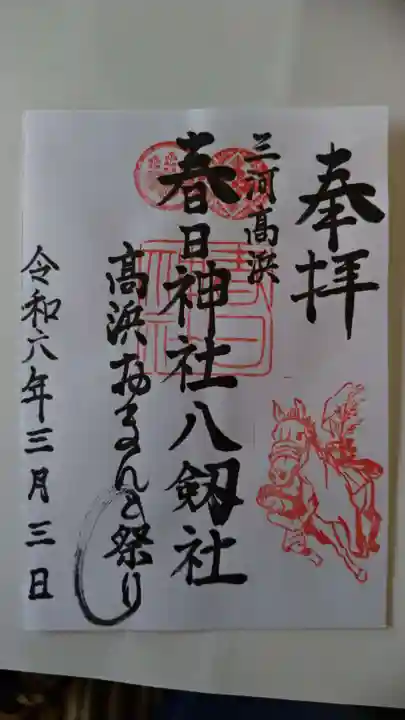 奉拝
三河高浜
春日神社八剱社
高浜おまんと祭り
令和六年三月三日
春日
神社